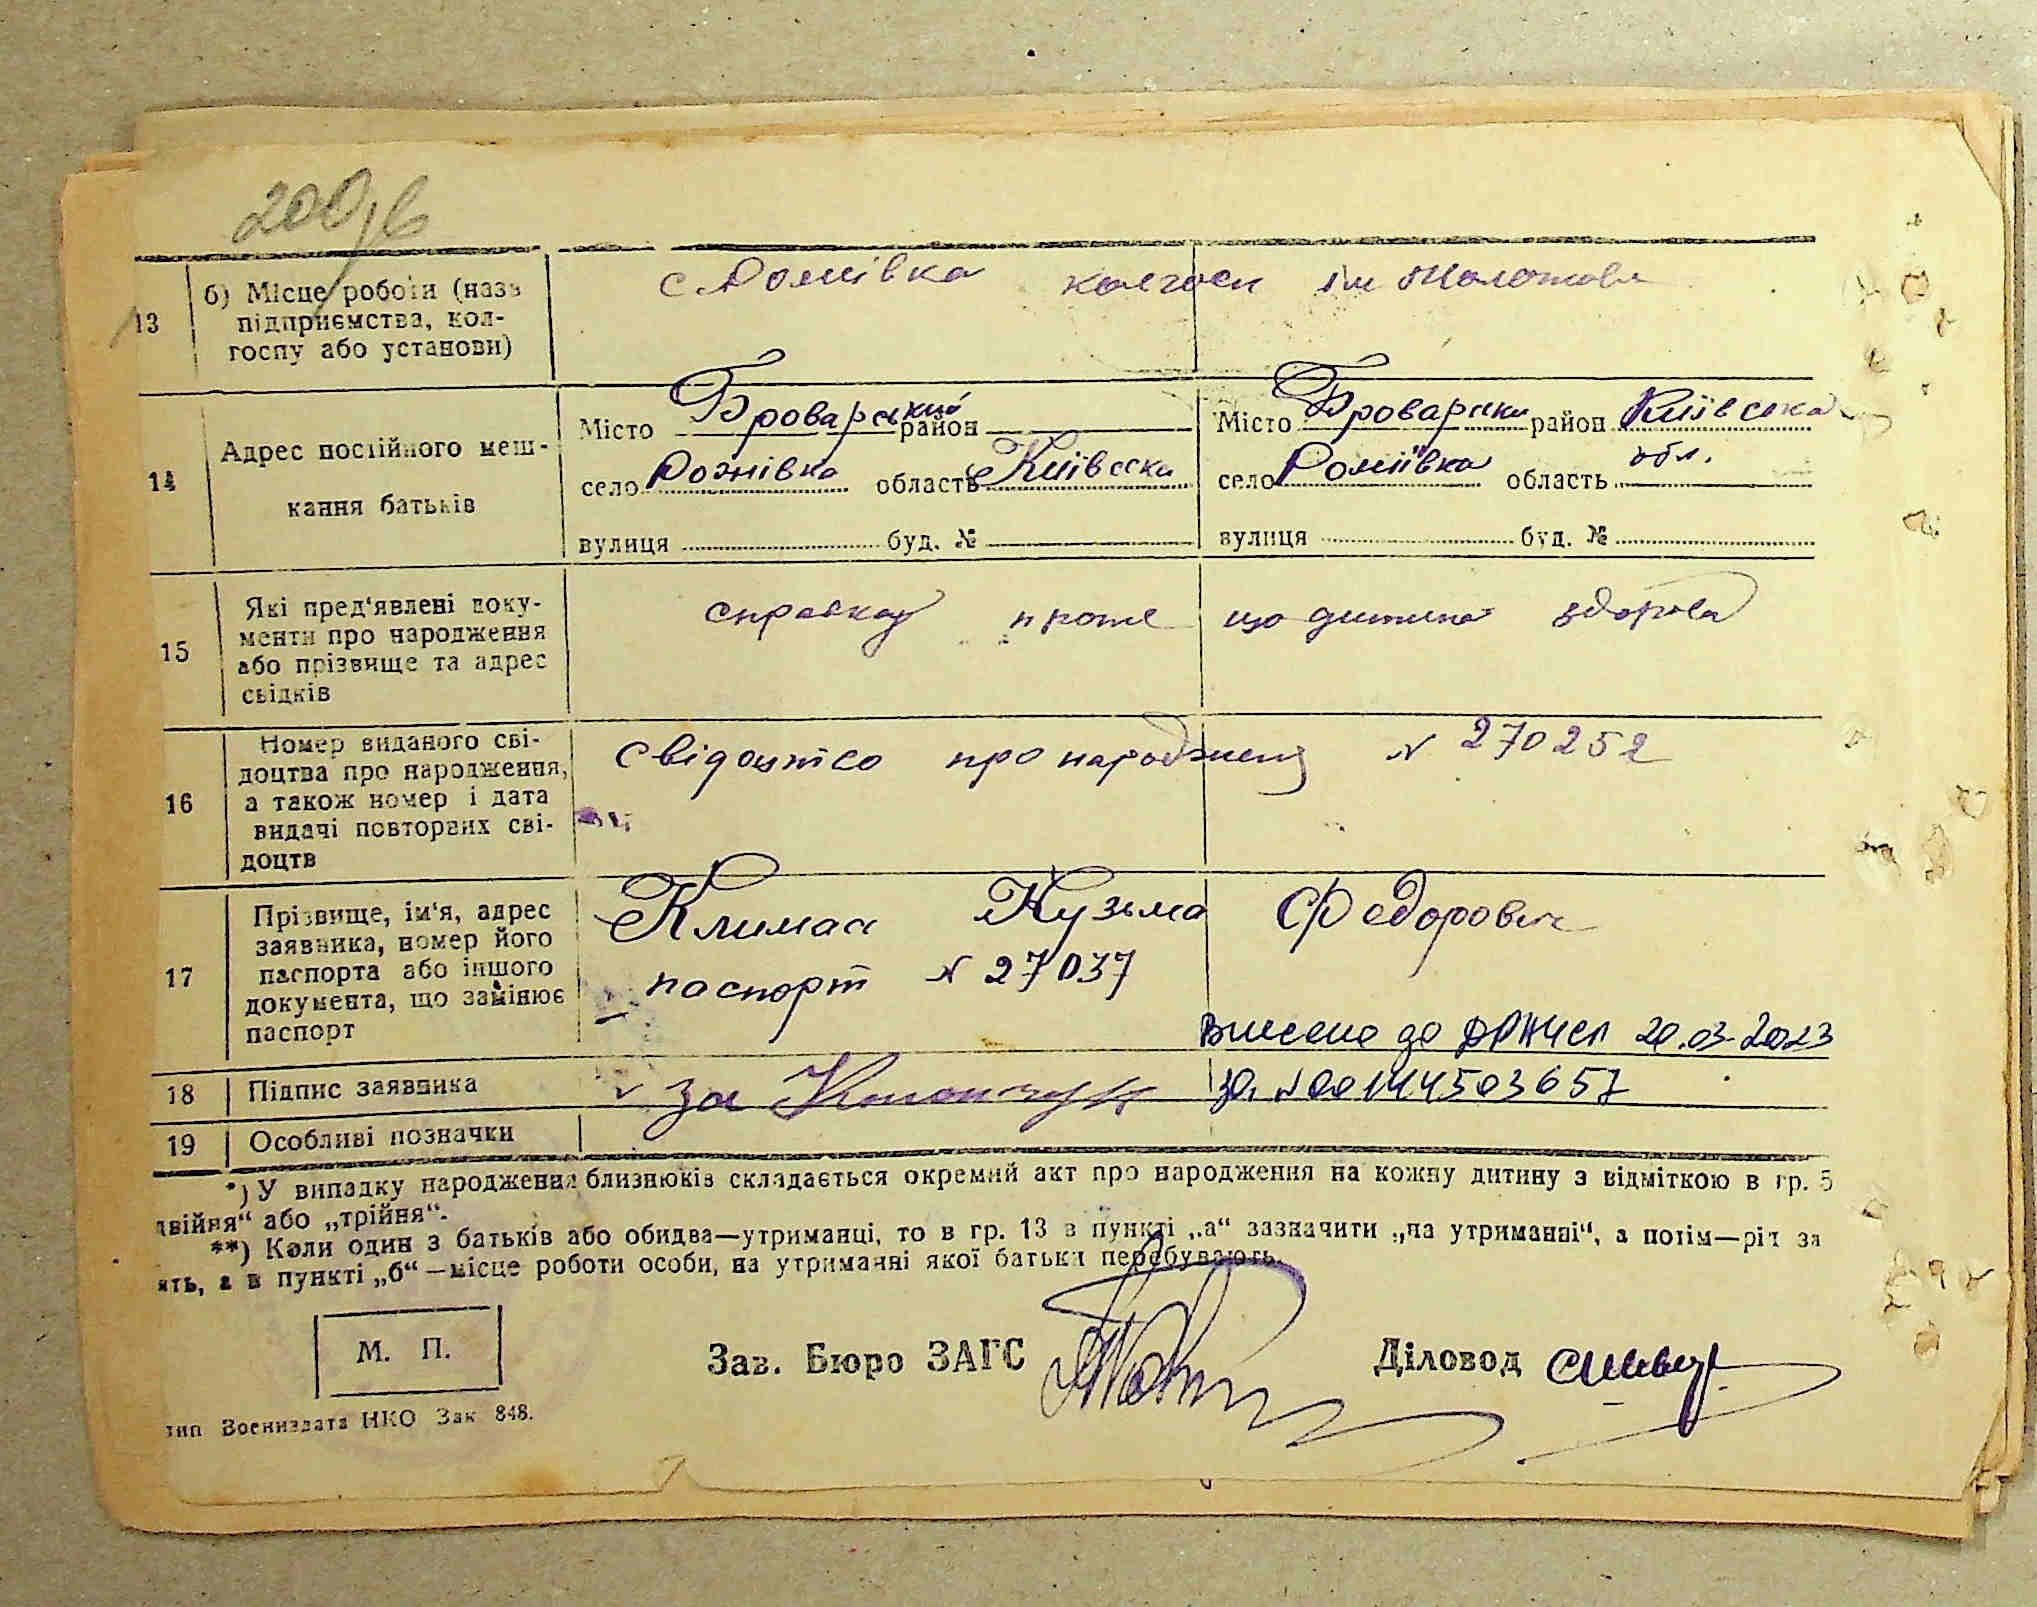 200
13
б) Місце роботи (назв
підприємства, кол-
госпу або установи)
с колгосп ім Молотова
14
Адрес постійного меш-
кання батьків
Місто Броварський район
село Рожнівка область Київсска
вулиця буд. №
Місто Броварски район Київсска
село область обл.
вулиця буд. №
15
Які пред'явлені доку-
менти про народження
або прізвище та адрес
свідків
справка проте що дитина здорова
16
Номер виданого сві-
доцтва про народження,
а також номер і дата
видачі повторних сві-
доцтв
свідоцтсо про народженя № 270252
17
Прізвище, ім'я, адрес
заявника, номер його
паспорта або іншого
документа, що замінює
паспорт
Кузьма Федорович
паспорт № 27037
Внесено до ДРАЦСГ 20.03.2023
18
Підпис заявника
за
за №00144503657
19
Особливі позначки
*) У випадку народження близнюків складається окремий акт про народження на кожну дитину з відміткою в гр. 5
двійня“ або „трійня“.
**) Коли один з батьків або обидва—утриманці, то в гр. 13 в пункті „а“ зазначити „на утриманні“, а потім—рід за
ять, а в пункті „б“ —місце роботи особи, на утриманні якої батьки перебувають.
М. П.
Зав. Бюро ЗАГС
Діловод
тип Воениздата НКО Зак 848.